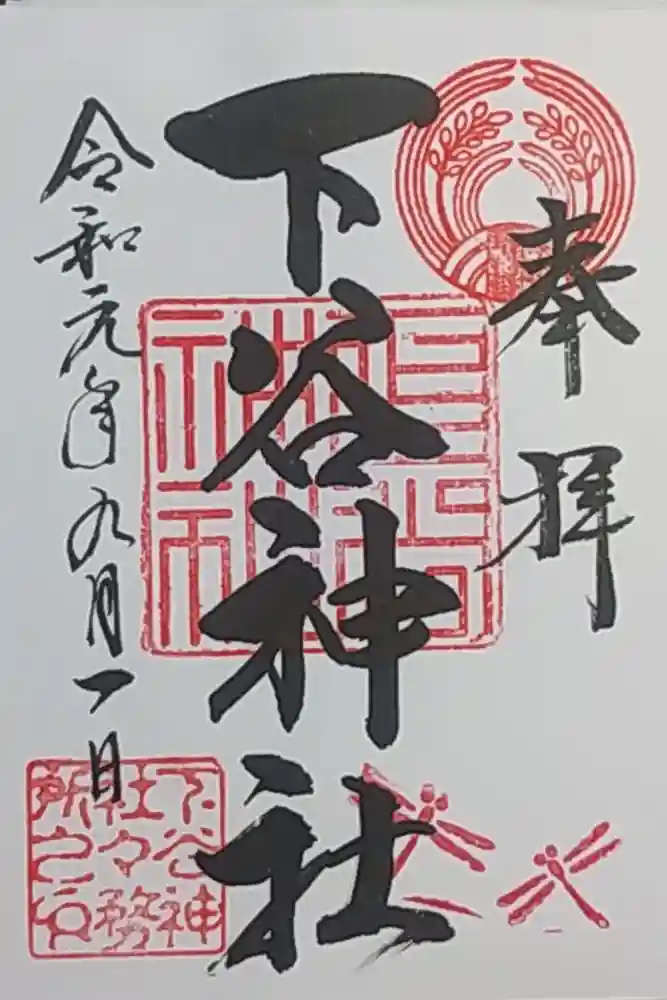 奉拝
下谷神社
令和元年九月一日
下谷神社
下谷神
社々務
所之印